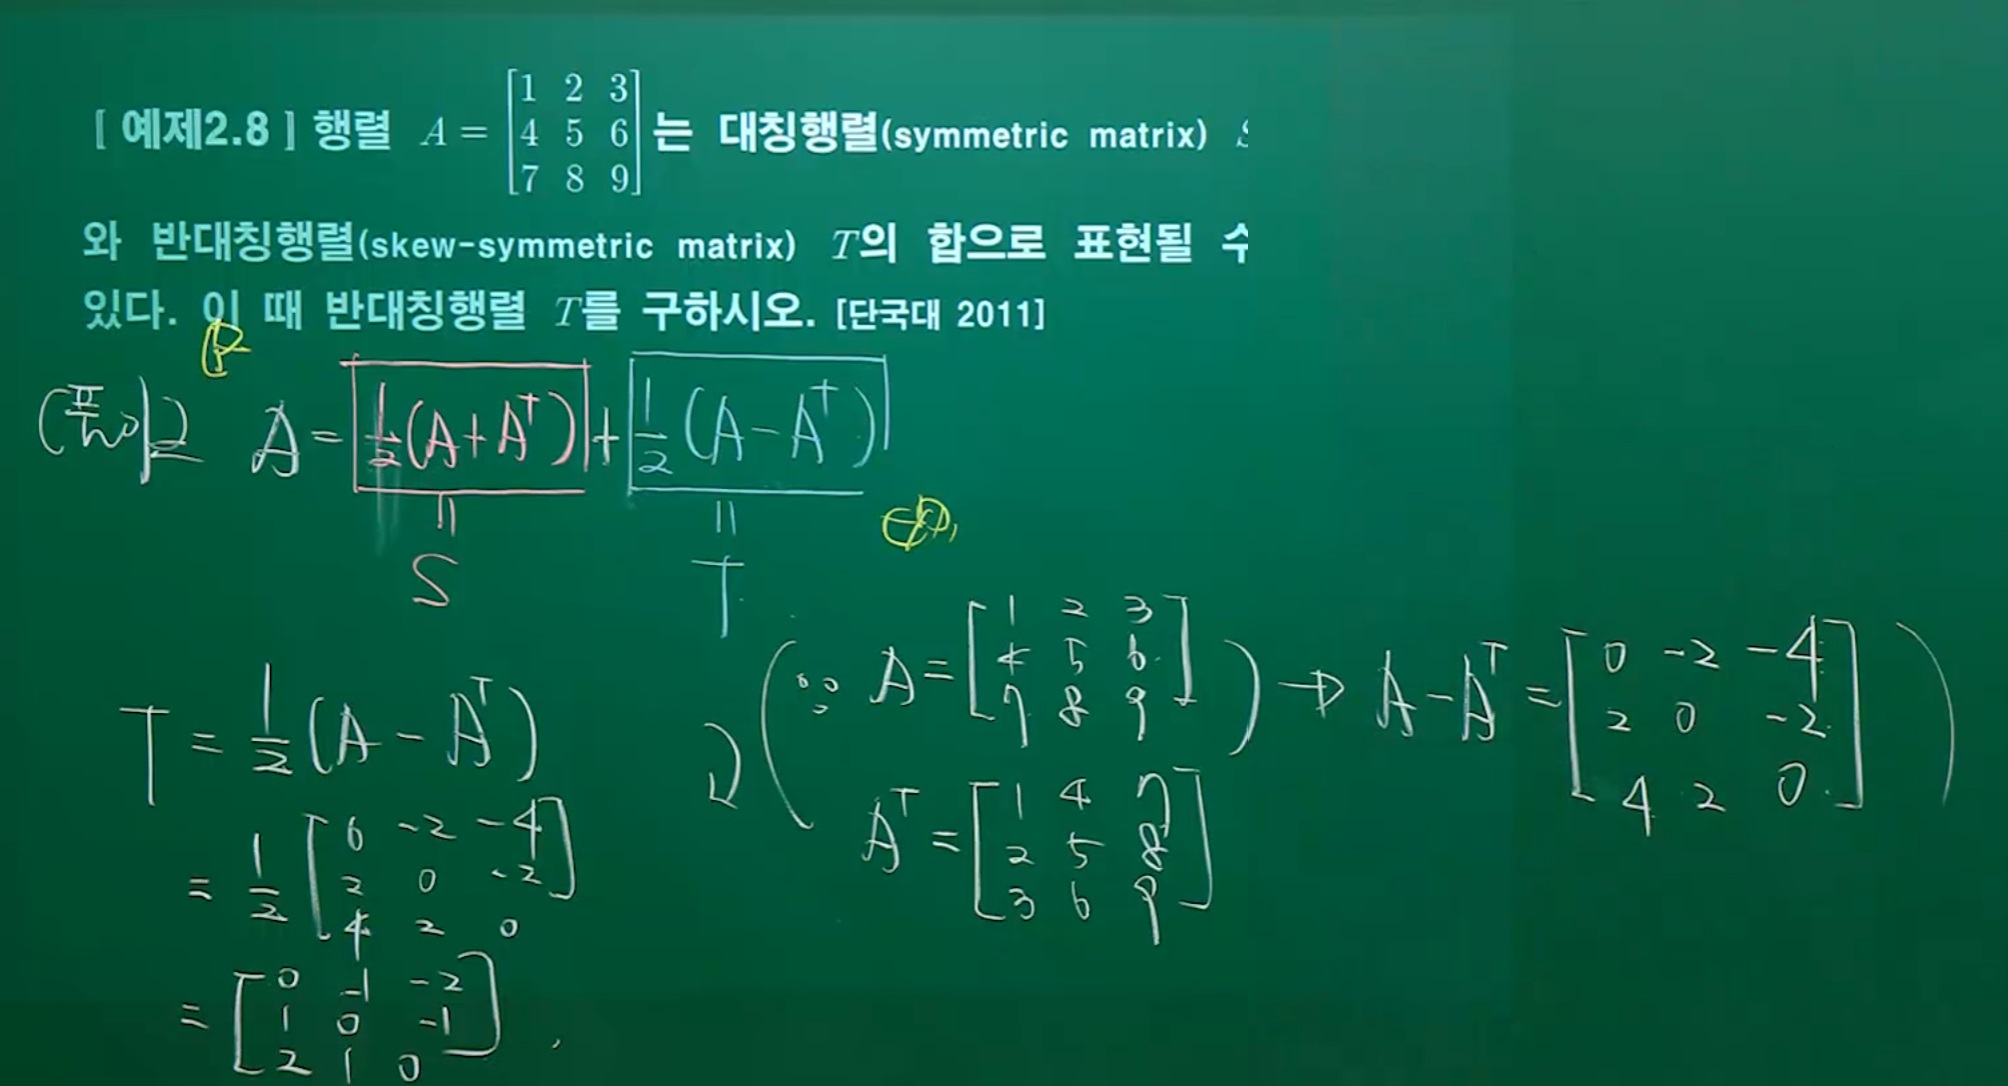 [ 예제2.8 ] 행렬 A = [1 2 3; 4 5 6; 7 8 9] 는 대칭행렬(symmetric matrix) S
와 반대칭행렬(skew-symmetric matrix) T의 합으로 표현될 수
있다. 이 때 반대칭행렬 T를 구하시오. [단국대 2011]
(풀이) A = 1/2 (A + A^T) + 1/2 (A - A^T)
= =
S T
T = 1/2 (A - A^T)
= 1/2 [0 -2 -4; 2 0 -2; 4 2 0]
= [0 -1 -2; 1 0 -1; 2 1 0].
(∵ A = [1 2 3; 4 5 6; 7 8 9] ) → A - A^T = [0 -2 -4; 2 0 -2; 4 2 0] )
A^T = [1 4 7; 2 5 8; 3 6 9]